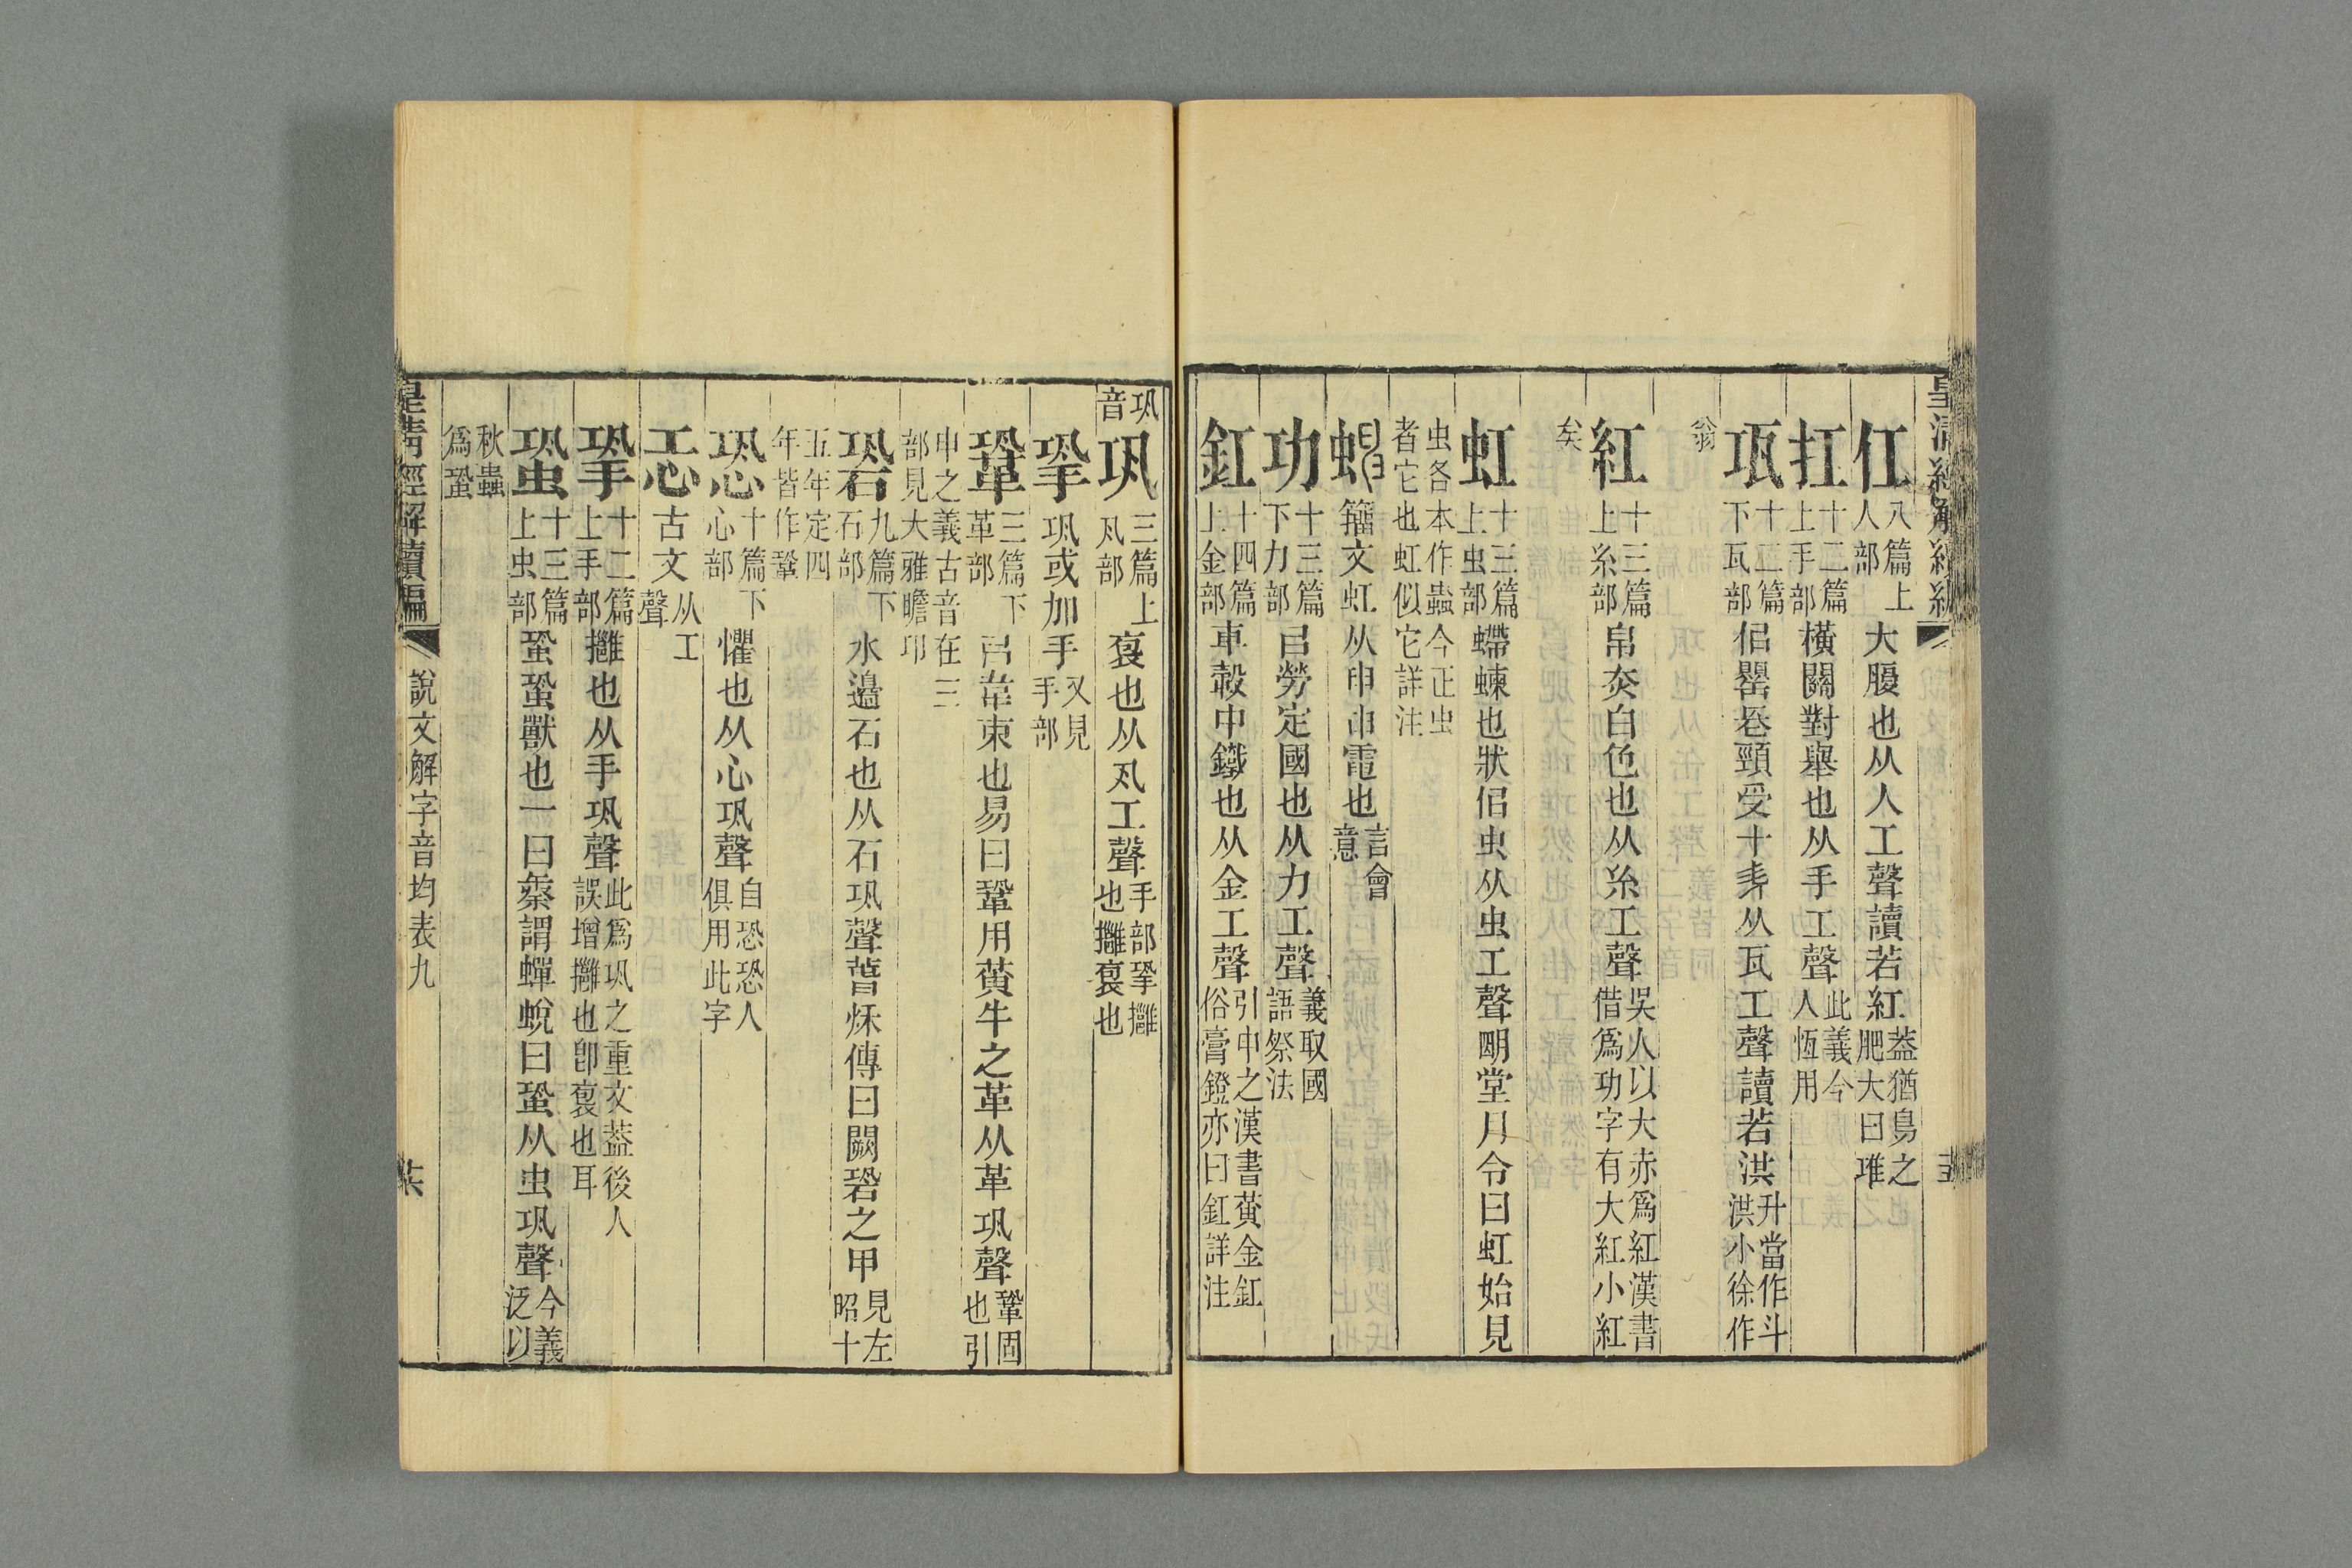 仜八篇上人部大腹也从人工聲讀若紅蓋猶鳥之肥大曰琟
扛十二篇上手部橫關對舉也从手工聲此義今人恆用
瓨十二篇下瓦部佀罌長頸受十升从瓦工聲讀若洪升當作斗洪小徐作
翁
紅十三篇上糸部帛赤白色也从糸工聲吳人以大赤爲紅漢書借爲功字有大紅小紅
矣
虹十三篇上虫部螮蝀也狀佀虫从虫工聲朙堂月令曰虹始見
虫各本作蟲今正虫者它也虹似它詳注
籒文虹从申申電也會意言
功十三篇下力部㠯勞定國也从力工聲義取國語祭法
釭十四篇上金部車轂中鐵也从金工聲引申之漢書黃金釭俗膏鐙亦曰釭詳注
巩音
巩三篇上丮部褱也从丮工聲手部鞏攡也攡褱也
巩或加手又見手部
鞏三篇下革部㠯韋束也易曰鞏用黃牛之革从革巩聲鞏固也引
申之義古音在三部見大雅瞻卬
䂬九篇下石部水邊石也从石巩聲春秌傳曰闕䂬之甲見左昭十
五年定四年皆作鞏
恐十篇下心部懼也从心巩聲自恐恐人俱用此字
㤨古文从工聲
十二篇上手部攡也从手巩聲此爲巩之重文蓋後人誤增攡也卽褱也耳
蛩十三篇上虫部蛩蛩獸也一曰秦謂蟬蛻曰蛩从虫巩聲今義泛以
秋蟲爲蛩
皇清經解續編
說文解字音均表九